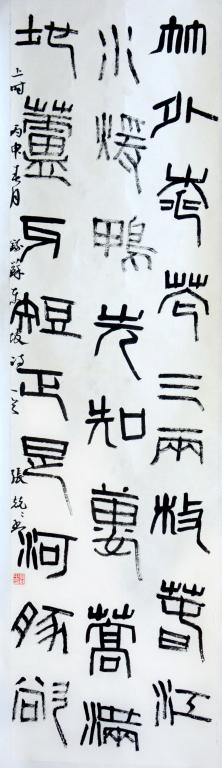 竹外桃花三兩枝春江
水煖鴨先知蔞蒿滿
地蘆牙短正是河豚欲
上時 丙申春月 錄蘇東坡詩一首 張